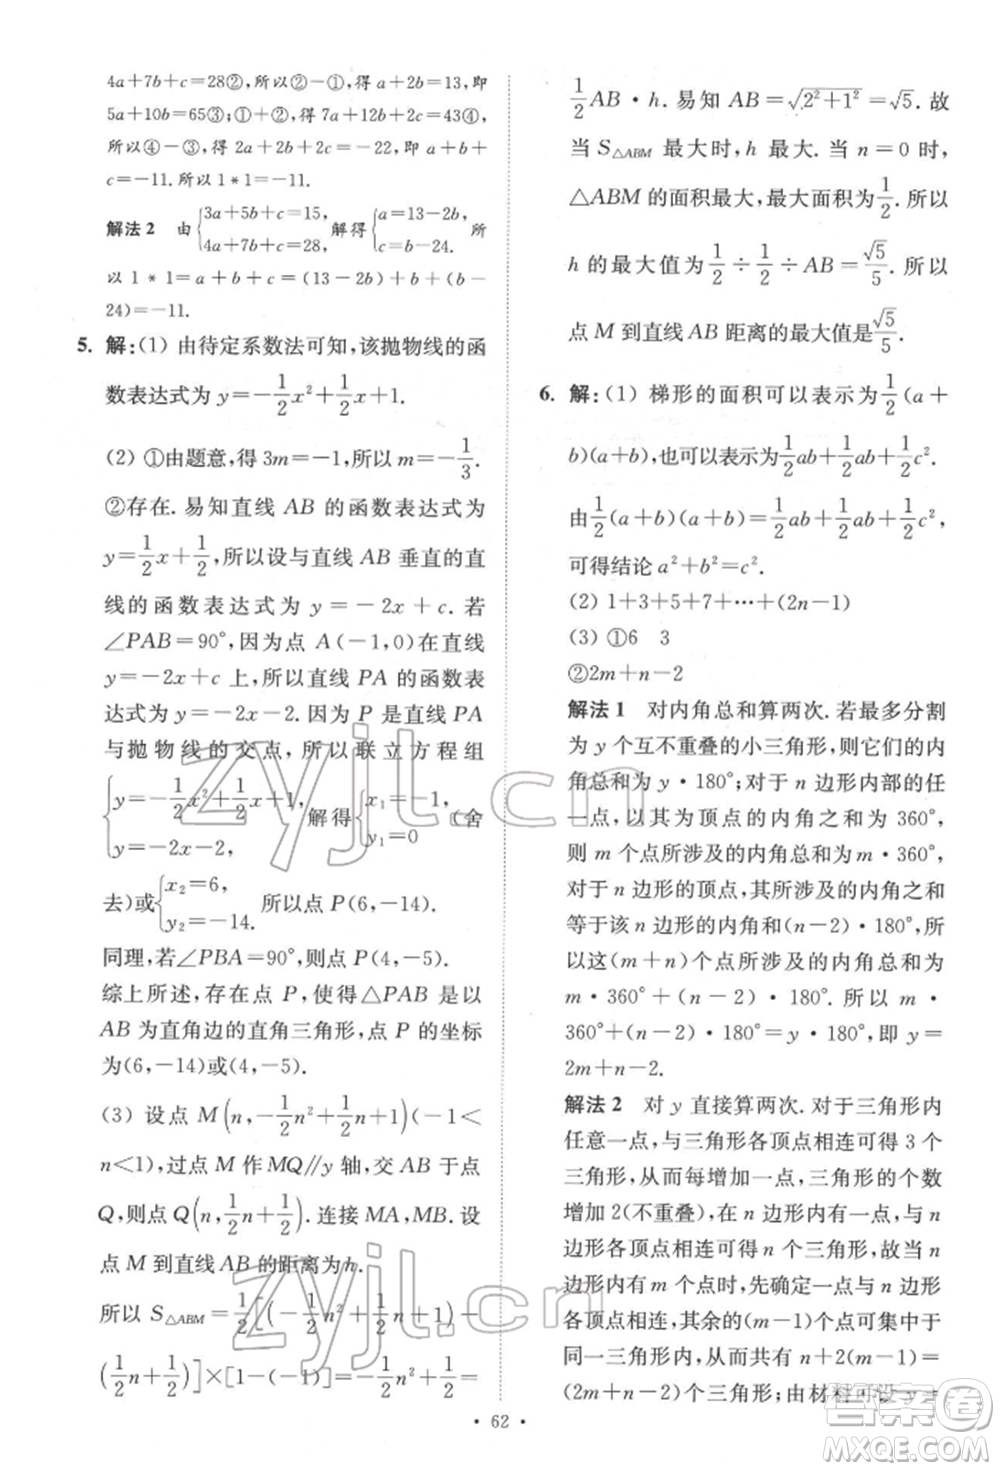 4a+7b+c=28②,所以②-①,得 a+2b=13,即
5a+10b=65③;②+①,得 7a+12b+2c=43④,
所以④-③,得 2a+2b+2c=-22,即 a+b+
c=-11.所以 1*1=-11.
解法2 由{3a+5b+c=15, 4a+7b+c=28,解得{a=13-2b, c=b-24. 所
以 1*1=a+b+c=(13-2b)+b+(b-
24)=-11.
5. 解:(1) 由待定系数法可知,该抛物线的函
数表达式为 y=-1/2x²+1/2x+1.
(2) ①由题意,得 3m=-1,所以 m=-1/3.
②存在. 易知直线 AB 的函数表达式为
y=1/2x+1/2,所以设与直线 AB 垂直的直
线的函数表达式为 y=-2x+c. 若
∠PAB=90°,因为点 A(-1,0)在直线
y=-2x+c 上,所以直线 PA 的函数表
达式为 y=-2x-2. 因为 P 是直线 PA
与抛物线的交点,所以联立方程组
{y=-1/2x²+1/2x+1, y=-2x-2, 解得{x₁=-1, y₁=0 (舍
去)或{x₂=6, y₂=-14. 所以点 P(6,-14).
同理,若∠PBA=90°,则点 P(4,-5).
综上所述,存在点 P,使得△PAB 是以
AB 为直角边的直角三角形,点 P 的坐标
为(6,-14)或(4,-5).
(3) 设点 M(n,-1/2n²+1/2n+1)(-1<
n<1),过点 M 作 MQ∥y 轴,交 AB 于点
Q,则点 Q(n,1/2n+1/2).连接 MA,MB. 设
点 M 到直线 AB 的距离为 h.
所以 S△ABM=1/2[(-1/2n²+1/2n+1)-
(1/2n+1/2)]×[1-(-1)]=-1/2n²+1/2=
1/2AB·h. 易知 AB=√(2²+1²)=√5. 故
当 S△ABM 最大时,h 最大. 当 n=0 时,
△ABM 的面积最大,最大值为1/2. 所以
h 的最大值为1/2÷1/2÷AB=√5/5. 所以
点 M 到直线 AB 距离的最大值是√5/5.
6. 解:(1) 梯形的面积可以表示为1/2(a+
b)(a+b),也可以表示为1/2ab+1/2ab+1/2c².
由1/2(a+b)(a+b)=1/2ab+1/2ab+1/2c²,
可得结论 a²+b²=c².
(2) 1+3+5+7+…+(2n-1)
(3) ①6 3
②2m+n-2
解法1 对内角总和算两次.若最多分割
为 y 个互不重叠的小三角形,则它们的内
角总和为 y·180°;对于 n 边形内部的任
一点,以其为顶点的内角之和为 360°,
则 m 个点所涉及的内角和为 m·360°,
对于 n 边形的顶点,其所涉及的内角和
等于该 n 边形的内角和(n-2)·180°,
所以这(m+n)个点所涉及的内角和为
m·360°+(n-2)·180°. 所以 m·
360°+(n-2)·180°=y·180°,即 y=
2m+n-2.
解法2 对 y 直接算两次. 对于三角形内
任意一点,与三角形各顶点相连可得 3 个
三角形,从而每增加一点,三角形的个数
增加 2(不重叠),又 n 边形内有一点,与 n
边形各顶点相连可得 n 个三角形,故当 n
边形内有 m 个点时,先确定一点与 n 边
形各顶点相连,其余的(m-1)个点可集中于
同一三角形内,共有 n+2(m-1)
=(2m+n-2)个三角形;由材料可设 y=
· 62 ·
zyjl.cn
zyjl.cn
答案圈
MXQE.COM